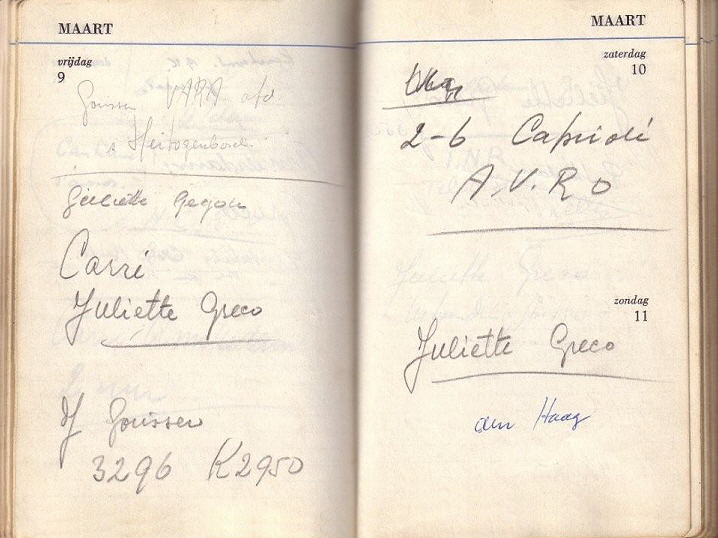 MAART
vrijdag
9
VARA afd
s Hertogenbosch
Juliette
Carré
Juliette Greco
Gorissen
3296 K2950
MAART
zaterdag
10
2-6 Caprioli
A.V.R.O
zondag
11
Juliette Greco
den Haag